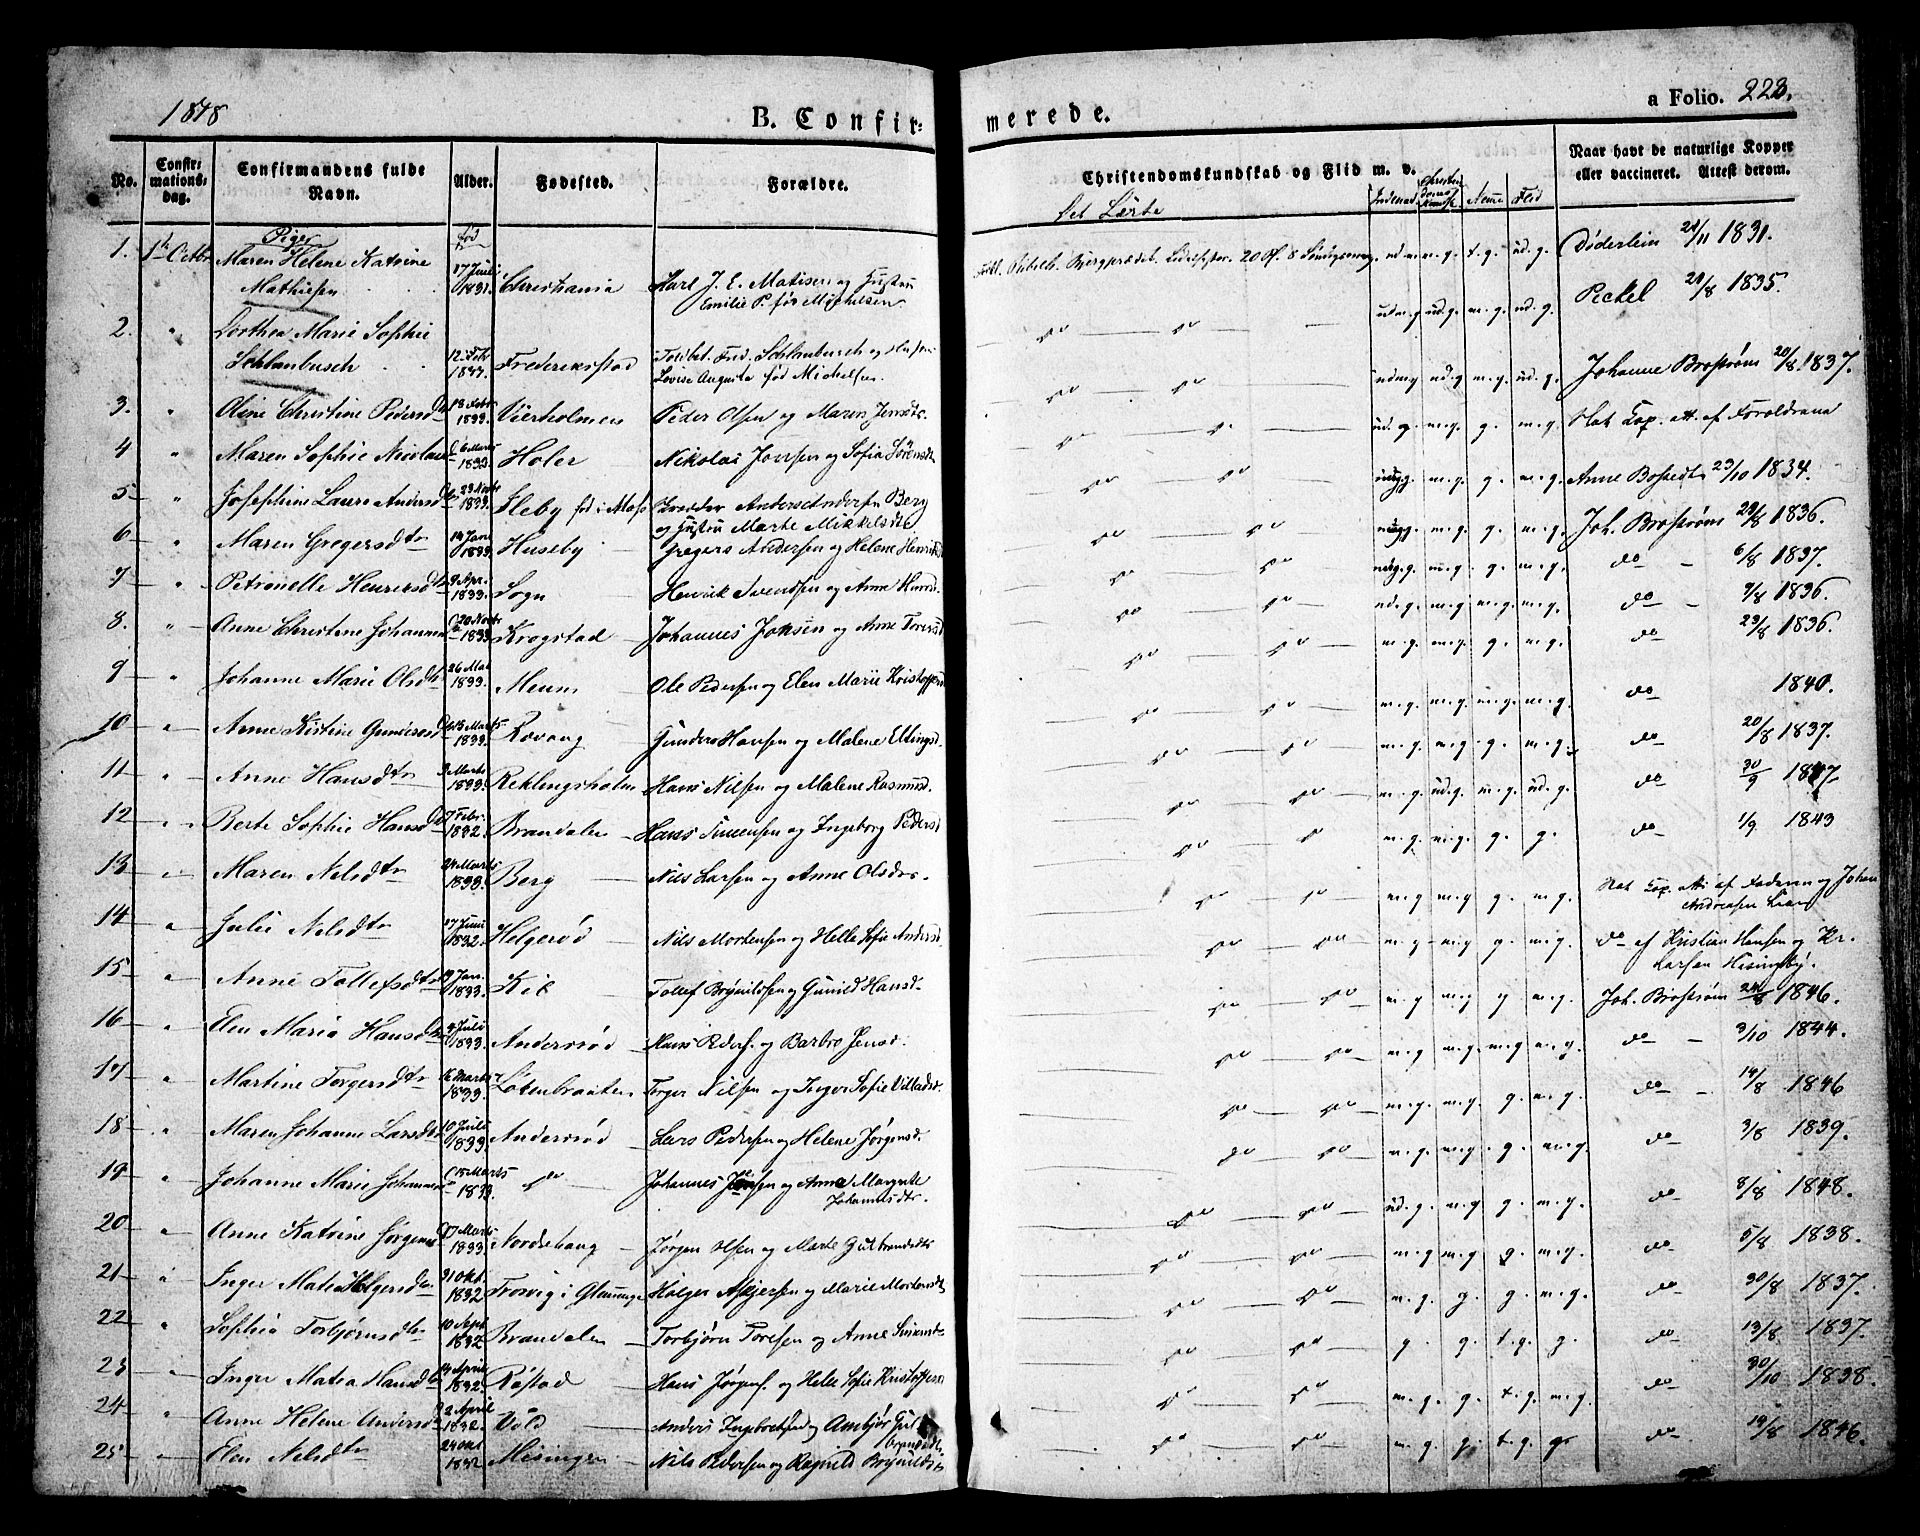 1848
B. Confirmerede.
a Folio. 223.
No.
Confirmationsdag.
Confirmandens fulde Navn.
Alder.
Fødested.
Forældre.
Christendomskundskab og Flid m. v.
Naar havt de naturlige Kopper eller vaccineret. Attest derom.
Det Lærte
Christendoms
Nemme
Flid
Piger
fød
1. 1ste Octbr Maren Helene Katrine Mathiesen 17 Juli 1831 Christiania Karl J. E. Matisen og Hustru Emilie P. fød Michelsen ud. g. Døderlein 21/11 1831.
2. " Dorthea Marie Sophie Schlanbusch 12 Febr Frederikstad Toldbet. Fred. Schlanbusch og Hustru Lovise Auguste fød Michelsen do do ud. g. m. g. ud. g. Peckel 21/8 1835.
3. " Oline Christine Pedersdtr 18 Febr 1833. Vierholmen Peder Olsen og Maren Jensdtr. do do ud. g. m. g. ud. g. Johanne Broström 20/8 1837.
4 " Maren Sophie Nicolaid 6 Marts 1833 Holer Nikolai Jonsen og Sofia Sörensdtr do do ud. g. m. g. g. m. g. Hat Cop. att. af Forældrene
5 " Josephine Laure Andersd 23 Novbr 1833. Fleby fød i Moss Anders Andersen Berg og Hustru Marte Mikkelsdtr do do m. g. g. m. g. Anne Bostedt 23/10 1834.
6 " Maren Gregersdtr 14 Jan 1833. Huseby Gregers Andersen og Helene Henriksd do do m. g. g. m. g. Joh. Broström 29/8 1836.
7 " Petronelle Henriksdtr 9 Apr. 1833. Sogn Henrik Svendsen og Anne Hansd do do m. g. g. m. g. do 6/8 1837.
8. " Anne Christine Johannesd 20 Novbr 1833 Krogstad Johannes Jonsen og Anne Toresd do do ud. g. m. g. m. g. m. g. do 9/8 1836.
9 " Johanne Marie Olsdtr 26 Mai 1833. Meum Ole Pedersen og Elen Marie Kristoffersd do do m. g. m. g. g. m. g. do 23/8 1836.
10 " Anne Kristine Gundersd 15 Marts 1833. Rovang Gunders Hansen og Malene Ellingsd. do do m. g. m. g. m. g. m. g. do 1840.
11 " Anne Hansdtr 3 Marts 1833. Reklingsholm Hans Nilsen og Malene Rasmusd. do do m. g. m. g. g. m. g. do 20/8 1837.
12 " Berte Sophie Hansd 7 Febr. 1832. Brandalen Hans Simensen og Ingeborg Pedersd do do m. g. ud. g. m. g. ud. g. do 30/9 1847.
13 " Maren Nilsdtr 24 Marts 1833. Berg Nils Larsen og Anne Olsdtr. do do m. g. m. g. g. g. do 1/9 1843
14 " Julie Nilsdtr 17 Juni 1832. Helgerød Nils Mortensen og Helle Sofie Andersd do do m. g m. g g. m. g. Hat Cop. att. af Faderen og Johan Andreasen Lien
15 " Anne Tollefsdtr 9 Jan. 1833. Kil Tollef Brynildsen og Gunild Hansd. do do m. g m. g g. m. g. do af Kristian Hansen og Kr. Larsen Misingby.
16 " Elen Maria Hansdtr 4 Juli 1833. Andersrød Hans Peders. og Barbro Jensd. do do m. g m. g. g m. g. Joh. Broström 24/8 1846.
17 " Martine Torgersdtr 16 Marts 1833. Lokenbraaten Torger Nilsen og Inger Sofie Villadsd. do do m. g m. g. m. g m. g. do 3/10 1844.
18 " Maren Johanne Larsdtr 10 Juli 1833. Andersrød Lars Pedersen og Helene Jørgensd. do do m. g. m. g. g. m. g. do 14/8 1846
19 " Johanne Marie Johannesd 15 Marts 1833. do Johannes Jensen og Anne Margrete Johannesdtr. do do m. g. m. g. g. m. g. do 3/8 1839.
20 " Anne Katrine Jørgensd 17 Marts 1833. Nordrehaug Jørgen Olsen og Marte Gulbrandsdtr do do ud. g. m. g g. m. g. do 8/8 1848.
21 " Inger Matia Holgersdtr 31 Okt. 1832 Trosvig i Glemminge Holger Asbjersen og Marie Mortensdtr do do m. g. m. g. g. m. g. do 5/8 1838.
22 " Sophia Torbjørnsdtr 10 Apr. 1832 Brandalen Torbjørn Toresen og Anne Simensdtr do do m. g. g. g. m. g. do 30/8 1837.
23 " Inger Matea Hansdtr 14 April 1832. Røstad Hans Jørgens. og Helle Sofie Kristoffersd do do g. g. t. g. g. do 13/8 1837.
24 " Anne Helene Andersdtr 2 April 1832. Vold Anders Ingebretsen og Anbjør Gulbrandsdtr do do m. g. g. t. g. m. g. do 30/10 1838.
25 " Elen Nilsdtr 24 Okt 1832 Misingen Nils Pedersen og Ragnild Brynildsdtr do do m. g. g. t. g. g. do 19/8 1846.